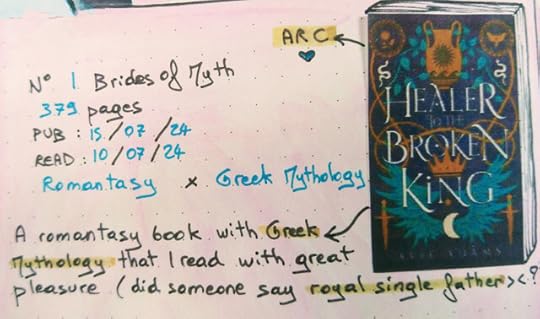 ARC
N° 1 Brides of Myth
379 pages
PUB : 15/07/24
READ : 10/07/24
Romantasy x Greek Mythology
HEALER
TO THE
BROKEN
KING
A romantasy book with Greek
Mythology that I read with great
pleasure (did someone say royal single father >< ?